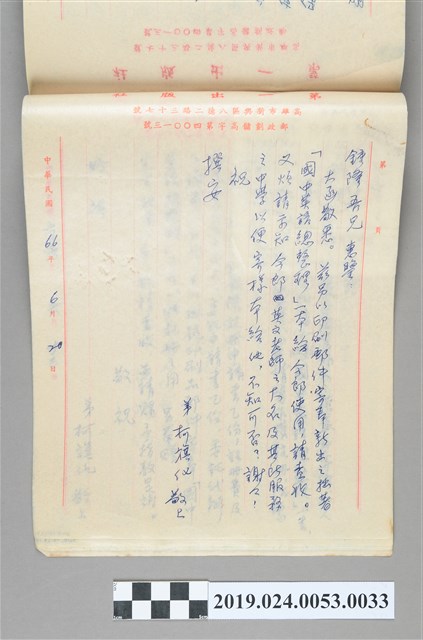 高雄市新興區八德二路三十七號
郵政劃撥高字第四〇〇一三號
第 頁
鍾隆吾兄 惠鑒：
大函敬悉。茲另以印刷郵件寄奉新出之拙著
「國中英語總整理」一本給令郎使用，請查收。
又煩請示知令郎英文老師之大名及其所服務
之中學以便寄樣本給他，不知可否？謝謝！
祝
撰安
弟 柯旗化 敬上
中華民國66年6月20日
2019.024.0053.0033